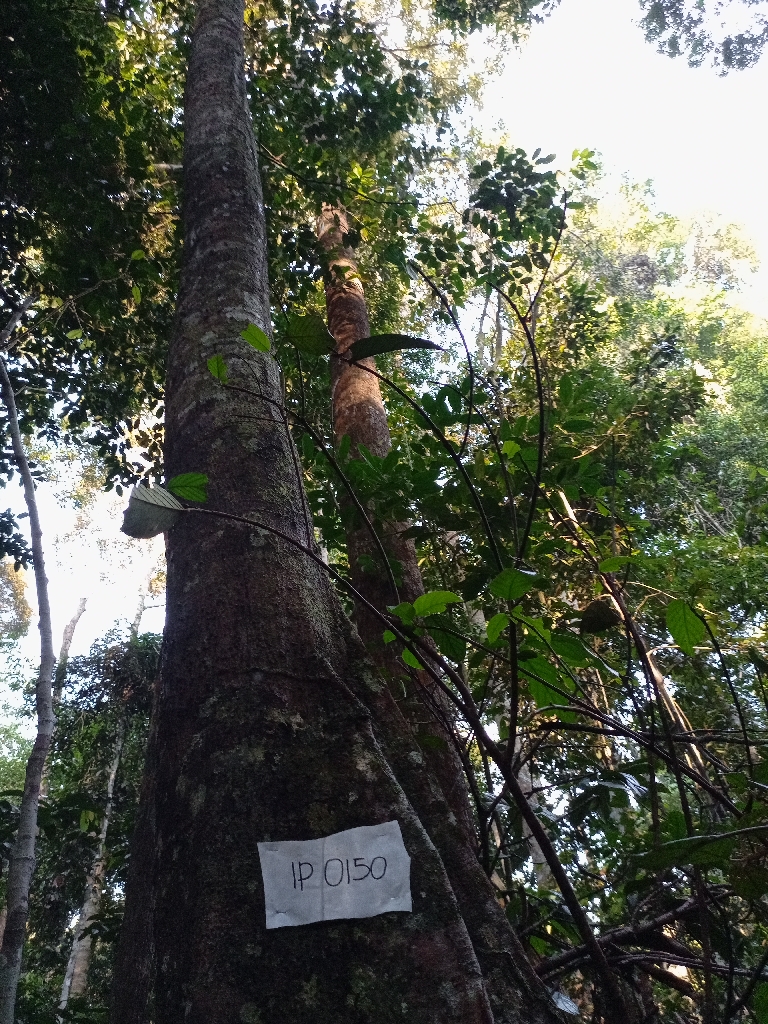 IP 0150